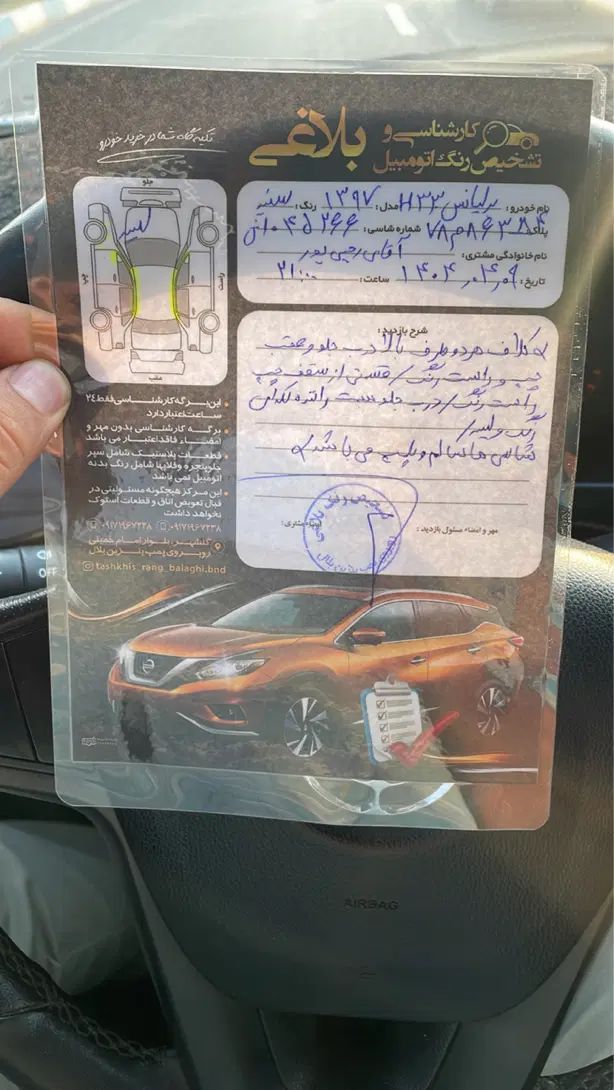 تکیه گاه شما در خرید خودرو
کارشناسی و
تشخیص رنگ اتومبیل
بلاغی
نام خودرو: برلیانس H33۰ مدل: ۱۳۹۷ رنگ: سفید
پلاک: شماره شاسی:
نام خانوادگی مشتری: آقای رجبی پور
تاریخ: ۱۴۰۴،۰۴،۰۹ ساعت: ۲۱:۰۰
جلو
چپ
راست
عقب
شرح بازدید:
کلاف هر دو طرف بالا درب جلو و عقب
چپ و راست رنگ/ قسمتی از سقف چپ
راست رنگ/ درب جلو
رنگ و لیسه/
شاسی ها سالم و پلمپ می باشد
مهر و امضاء مسئول بازدید:
امضاء مشتری:
این برگه کارشناسی فقط ۲۴
ساعت اعتبار دارد
برگه کارشناسی بدون مهر و
امضاء فاقد اعتبار می باشد
قطعات پلاستیک شامل سپر
جلو پنجره و قلابها شامل رنگ بدنه
اتومبیل نمی باشد
این مرکز هیچگونه مسئولیتی در
قبال تعویض اتاق و قطعات استوک
نخواهد داشت
۰۹۱۷۱۹۶۷۲۳۸ ۰۹۱۷۱۹۶۷۲۳۸
گلشهر، بلوار امام خمینی
روبروی پمپ بنزین بلال
tashkhis_rang_balaghi.bnd
AIRBAG